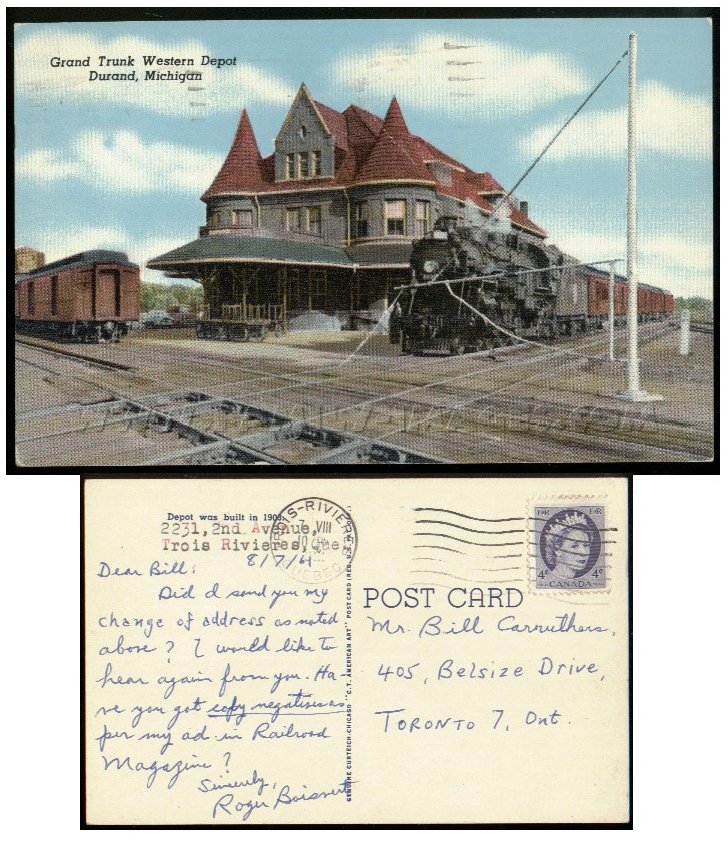 Grand Trunk Western Depot
Durand, Michigan
Depot was built in 1903
2231, 2nd Avenue,
Trois Rivieres, Que.
8/7/61
Dear Bill:
Did I send you my
change of address as noted
above? I would like to
hear again from you. Ha
ve you got copy negatives as
per my ad in Railroad
Magazine?
Sincerely,
Roger Boisvert
GENUINE CURTEICH-CHICAGO "C.T. AMERICAN ART" POST CARD (REG. U.S. PAT. OFF.)
TROIS-RIVIERES
VIII
QUEBEC
4c CANADA 4c
POST CARD
Mr. Bill Carruthers,
405, Belsize Drive,
TORONTO 7, Ont.